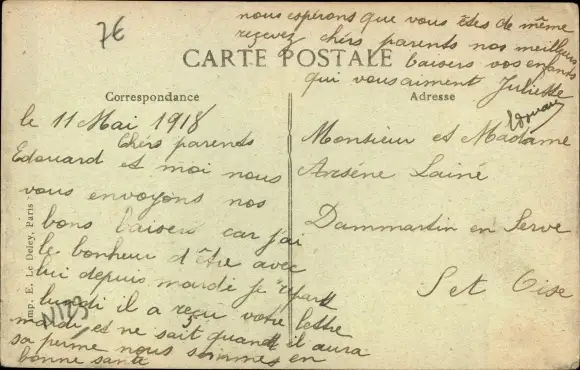 7€
nous espérons que vous êtes de même
reçevez chérs parents nos meilleurs
CARTE POSTALE
baisers vos enfants
qui vous aiment Juliette
Edouard
Correspondance
Adresse
le 11 Mai 1918
Chérs parents
Edouard et moi nous
vous envoyons nos
bons baisers car j'ai
le bonheur d'être avec
lui depuis mardi je repart
lundi il a reçu votre lettre
mardi et ne sait quand il aura
sa perme nous sommes en
bonne santé
Monsieur et Madame
Arséne Lainé
Dammartin en Serve
S et Oise
Imp. E. Le Deley, Paris
N123